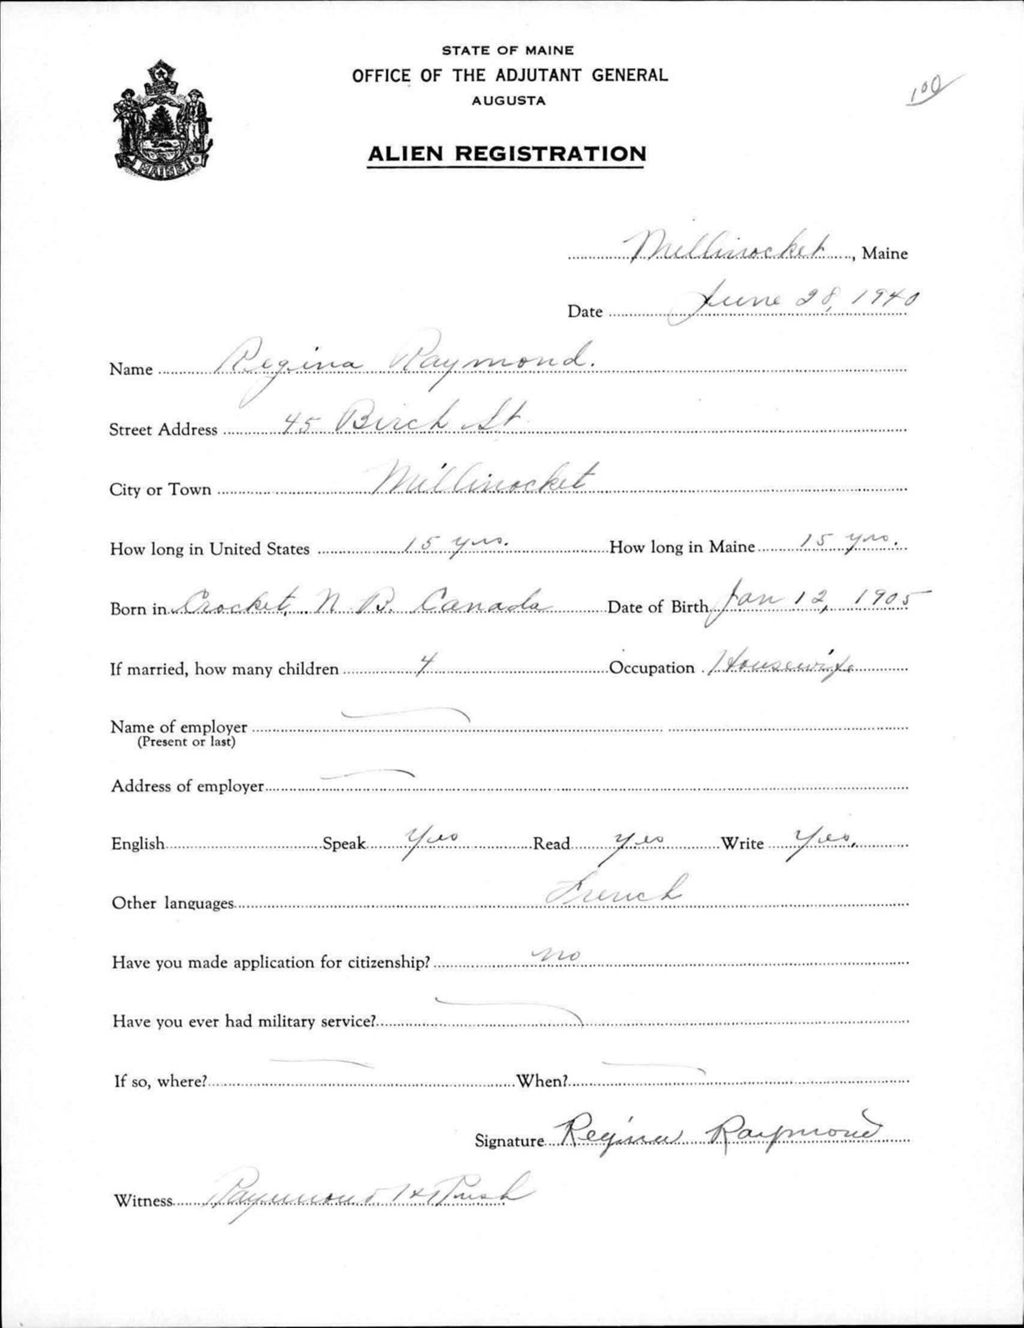 STATE OF MAINE
OFFICE OF THE ADJUTANT GENERAL
AUGUSTA
100
ALIEN REGISTRATION
MAINE
Millinocket, Maine
Date June 28, 1940
Name Regina Raymond.
Street Address 45 Birch St
City or Town Millinocket
How long in United States 15 yrs. How long in Maine 15 yrs.
Born in Crocket, N.B. Canada Date of Birth Jan 12, 1905
If married, how many children 4 Occupation Housewife
Name of employer
(Present or last)
Address of employer
English Speak Yes Read Yes Write Yes.
Other languages French
Have you made application for citizenship? no
Have you ever had military service?
If so, where? When?
Signature Regina Raymond
Witness Raymond H Rush